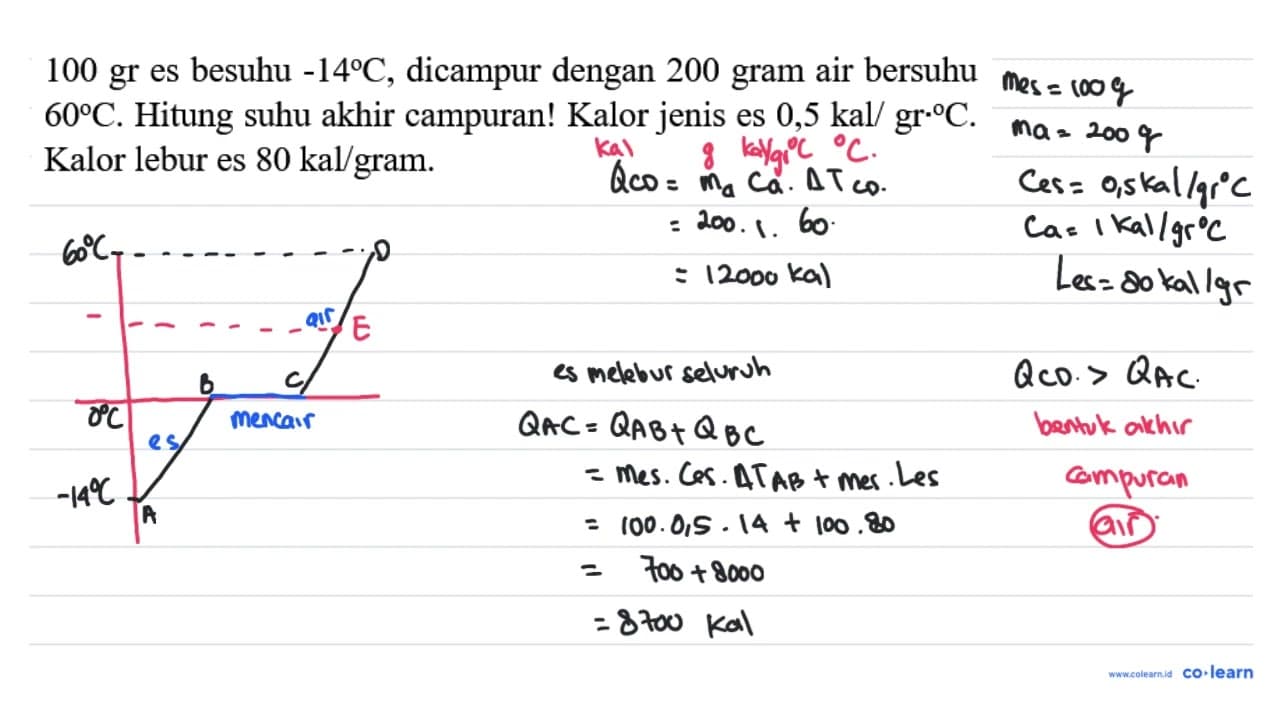 100 gr es besuhu -14°C, dicampur dengan 200 gram air bersuhu
60°C. Hitung suhu akhir campuran! Kalor jenis es 0,5 kal/ gr.°C.
Kalor lebur es 80 kal/gram.
mes = 100 g
ma = 200 g
Ces = 0,5 kal/gr°C
Ca = 1 kal/gr°C
Les = 80 kal/gr
kal g kal/gr°C °C.
QCD = ma Ca. ΔT CD.
= 200. 1. 60.
= 12000 kal
60°C
D
air
E
B
C
0°C
mencair
es
-14°C
A
es melebur seluruh
QAC = QAB + QBC
= mes. Ces. ΔTAB + mes. Les
= 100. 0,5. 14 + 100. 80
= 700 + 8000
= 8700 kal
QCD. > QAC.
bentuk akhir
campuran
air
www.colearn.id co·learn